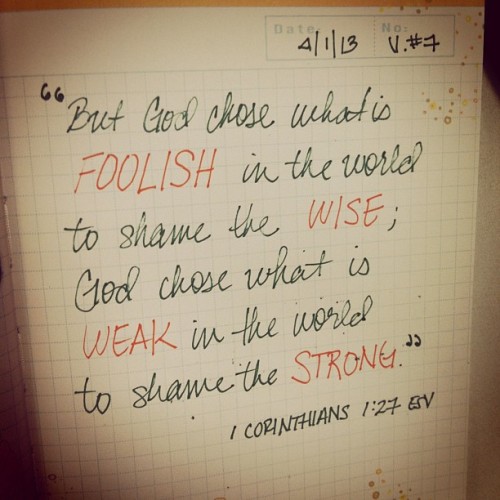 Date: No:
4/1/13 V.#7
“But God chose what is
FOOLISH in the world
to shame the WISE;
God chose what is
WEAK in the world
to shame the STRONG.”
1 CORINTHIANS 1:27 ESV